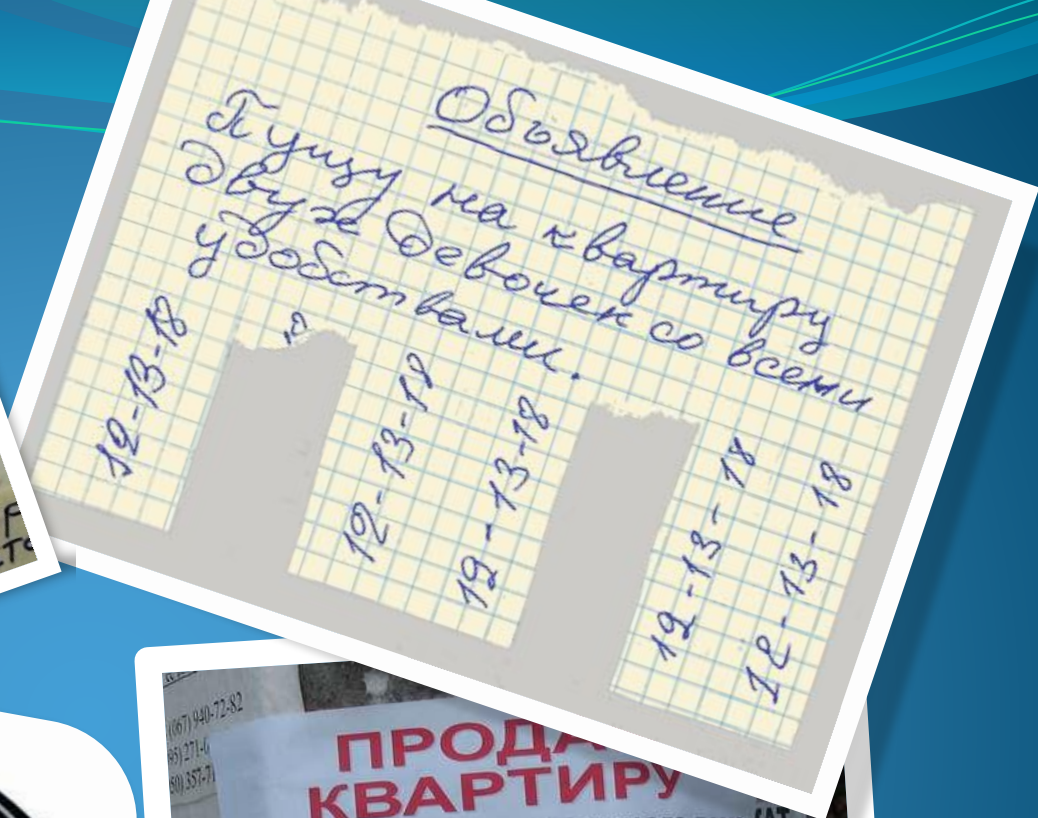 Объявление
Пущу на квартиру
двух девочек со всеми
удобствами.
12-13-18
12-13-18
12-13-18
12-13-18
12-13-18
(067) 940-72-82
ПРОДА
КВАРТИРУ